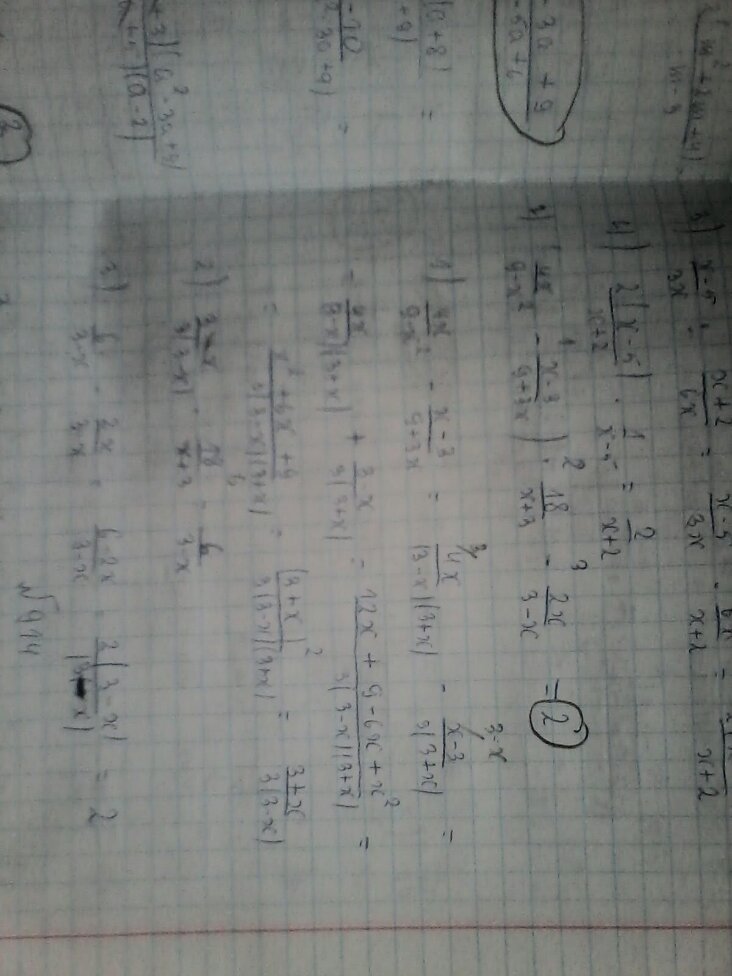 (m² + 2m + 4) / m -
- 3a + 9 / - 5a + 6
(a + 3) / + 9) =
- 10 / - 3a + 9) =
(a² - 3a + 9) / (a - 2)
3) x-5 / 3x : x+2 / 6x = x-5 / 3x · 6x / x+2 = / x+2
4) 2(x-5) / x+2 · 1 / x-5 = 2 / x+2
3) (4x / 9-x² - x-3 / 9+3x) · 18 / x+3 - 2x / 3-x = 2
1) 4x / 9-x² - x-3 / 9+3x = 4x / (3-x)(3+x) - x-3 / 3(3+x) =
= 4x / (3-x)(3+x) + 3-x / 3(3+x) = 12x + 9 - 6x + x² / 3(3-x)(3+x) =
= x² + 6x + 9 / 3(3-x)(3+x) = (3+x)² / 3(3-x)(3+x) = 3+x / 3(3-x)
2) 3+x / 3(3-x) · 18 / x+3 = 6 / 3-x
3) 6 / 3-x - 2x / 3-x = 6-2x / 3-x = 2(3-x) / (3-x) = 2
№914